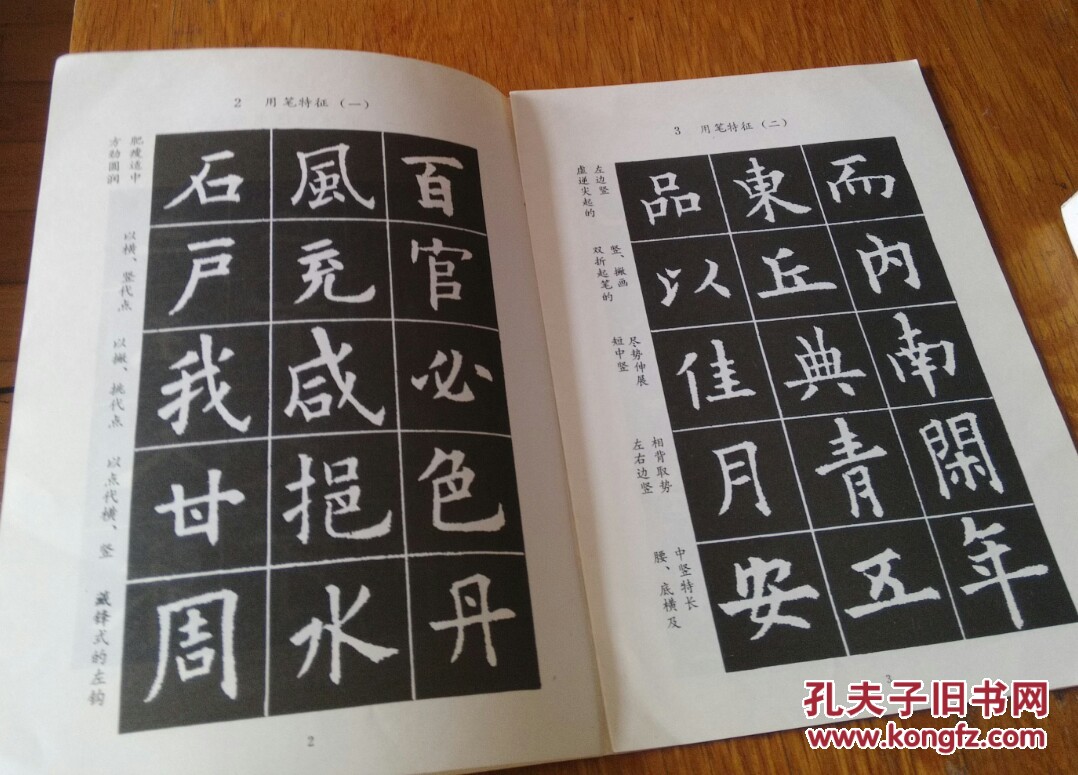 2 用笔特征（一）
方劲圆润
肥瘦适中
石風百
以横、竖代点
戸充官
以撇、挑代点
我咸必
以点代横、竖
甘挹色
藏锋式的左钩
周水丹
2
3 用笔特征（二）
虚逆实起的
左边竖
品東而
双折起笔的
竖、撇画
以丘内
短中竖
尽势伸展
佳典南
左右边竖
相背取势
月青閑
腰、底横及
中竖特长
安五年
3
孔夫子旧书网
www.kongfz.com